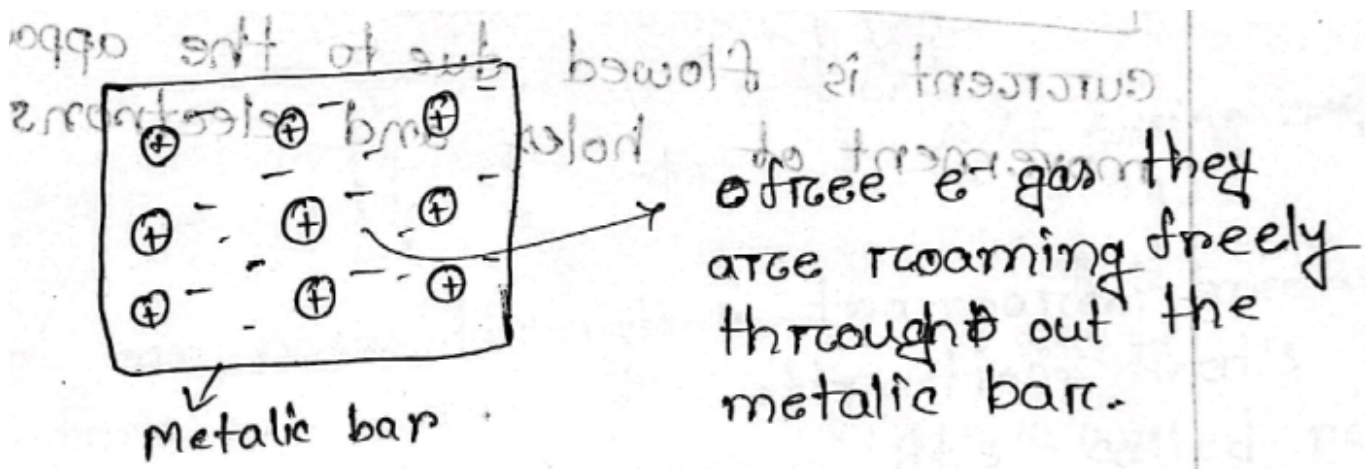 free e⁻ gas they
are roaming freely
throught out the
metalic bar.
Metalic bar